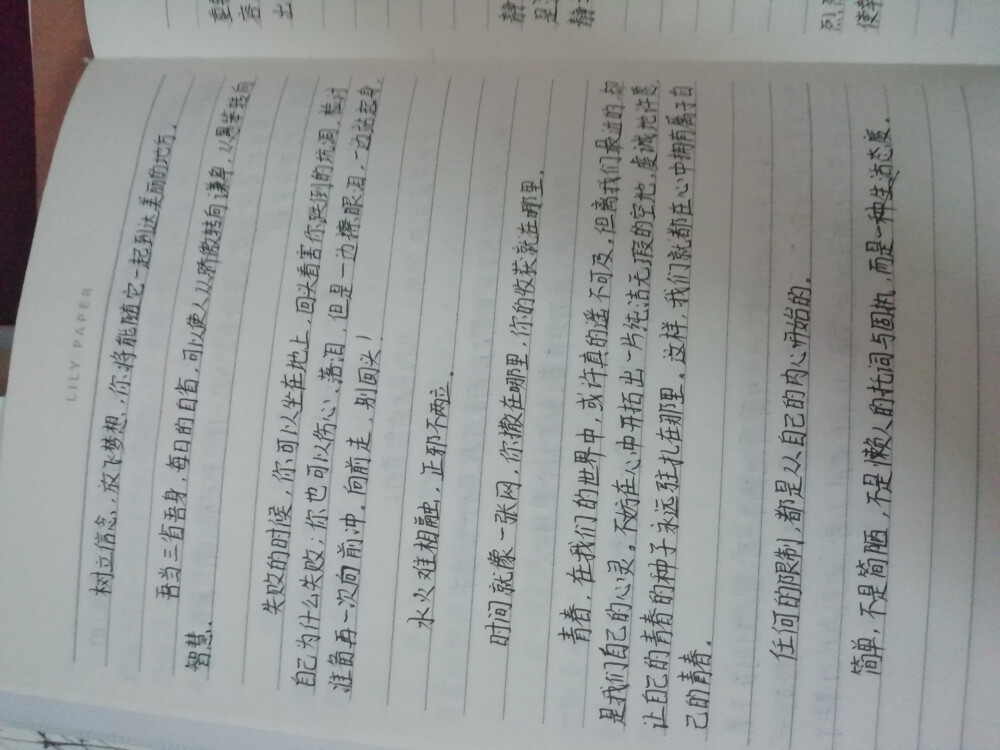 LILY PAPER
树立信念,放飞梦想,你将能随它一起到达美丽的地方。
吾当三省吾身,每日的自省,可以使人从骄傲转向谦卑,从愚笨转向
智慧。
失败的时候,你可以坐在地上,回头看害你跌倒的坑洞,检讨
自己为什么失败;你也可以伤心、落泪,但是一边擦眼泪,一边站起身,
准备再一次向前冲。向前走,别回头!
水火难相融,正邪不两立。
时间就像一张网,你撒在哪里,你的收获就在哪里。
青春,在我们的世界中,或许真的遥不可及,但离我们最近的却
是我们自己的心灵。不妨在心中开拓出一片纯洁无瑕的空地,虔诚地许愿
让自己的青春的种子永远驻扎在那里。这样,我们就都在心中拥有属于自
己的青春。
任何的限制,都是从自己的内心开始的。
简单,不是简陋,不是懒人的托词与固执,而是一种生活态度。